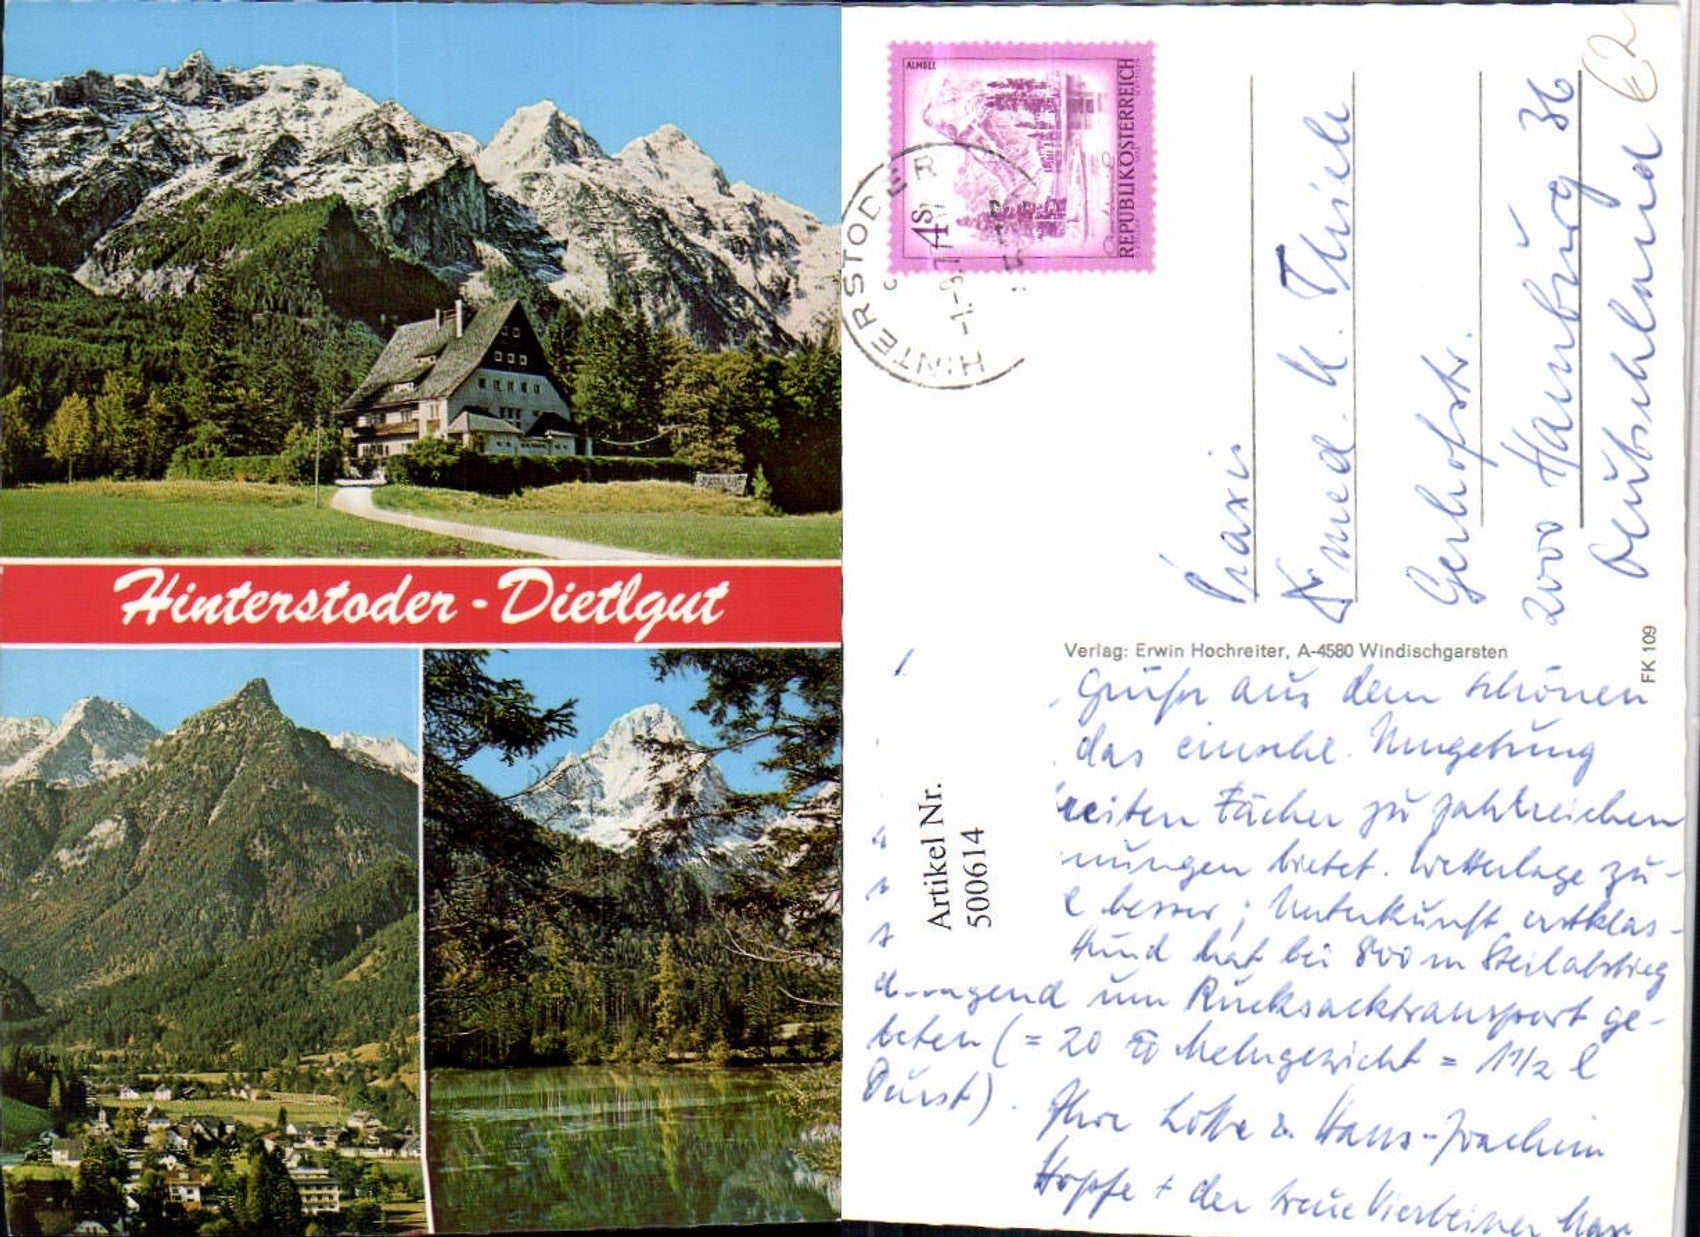 Hinterstoder - Dietlgut
ALMSEE
4s
REPUBLIK ÖSTERREICH
HINTERSTODER
-1.-9.7
€2
Praxis
Dr. med. U. Thiele
Gerhofstr.
2000 Hamburg 36
Deutschland
Verlag: Erwin Hochreiter, A-4580 Windischgarsten
FK 109
Artikel Nr.
500614
Grüße aus dem schönen
das einschl. Umgebung
reiten Fächer zu zahlreichen
nungen bietet. Wetterlage zu-
l besser; Unterkunft erstklas-
Hund hat bei 800 m Steilabstieg
d..ngend um Rucksacktransport ge-
beten (= 20 Mehrgewicht = 1 1/2 l
Durst).
Ihre Lotte u. Hans-Joachim
Hoppe + der treue Vierbeiner